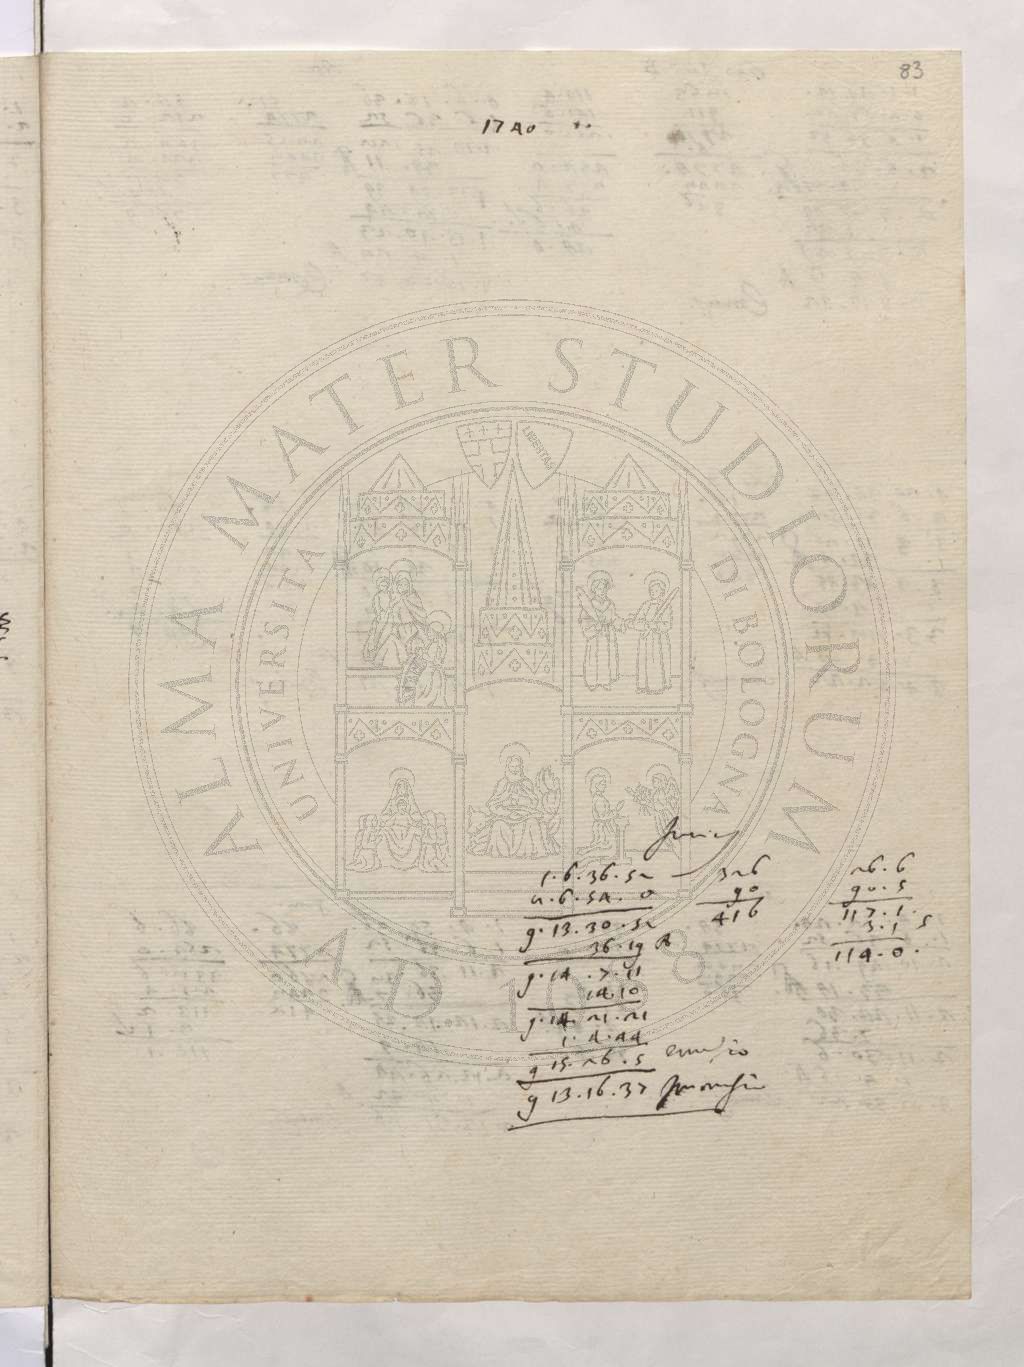 83
1740
ALMA MATER STUDIORUM
UNIVERSITA DI BOLOGNA
LIBERTAS
A.D. 1088
1.6.36.52 — 326 26.6
8.6.54.0 90 90.5
9.13.30.52 416 117.1.
36.19 3.1 5
9.14.7.11 114.0.
14.10
9.14.21.21
1.4.44
9 15.26.5
9 13.16.37